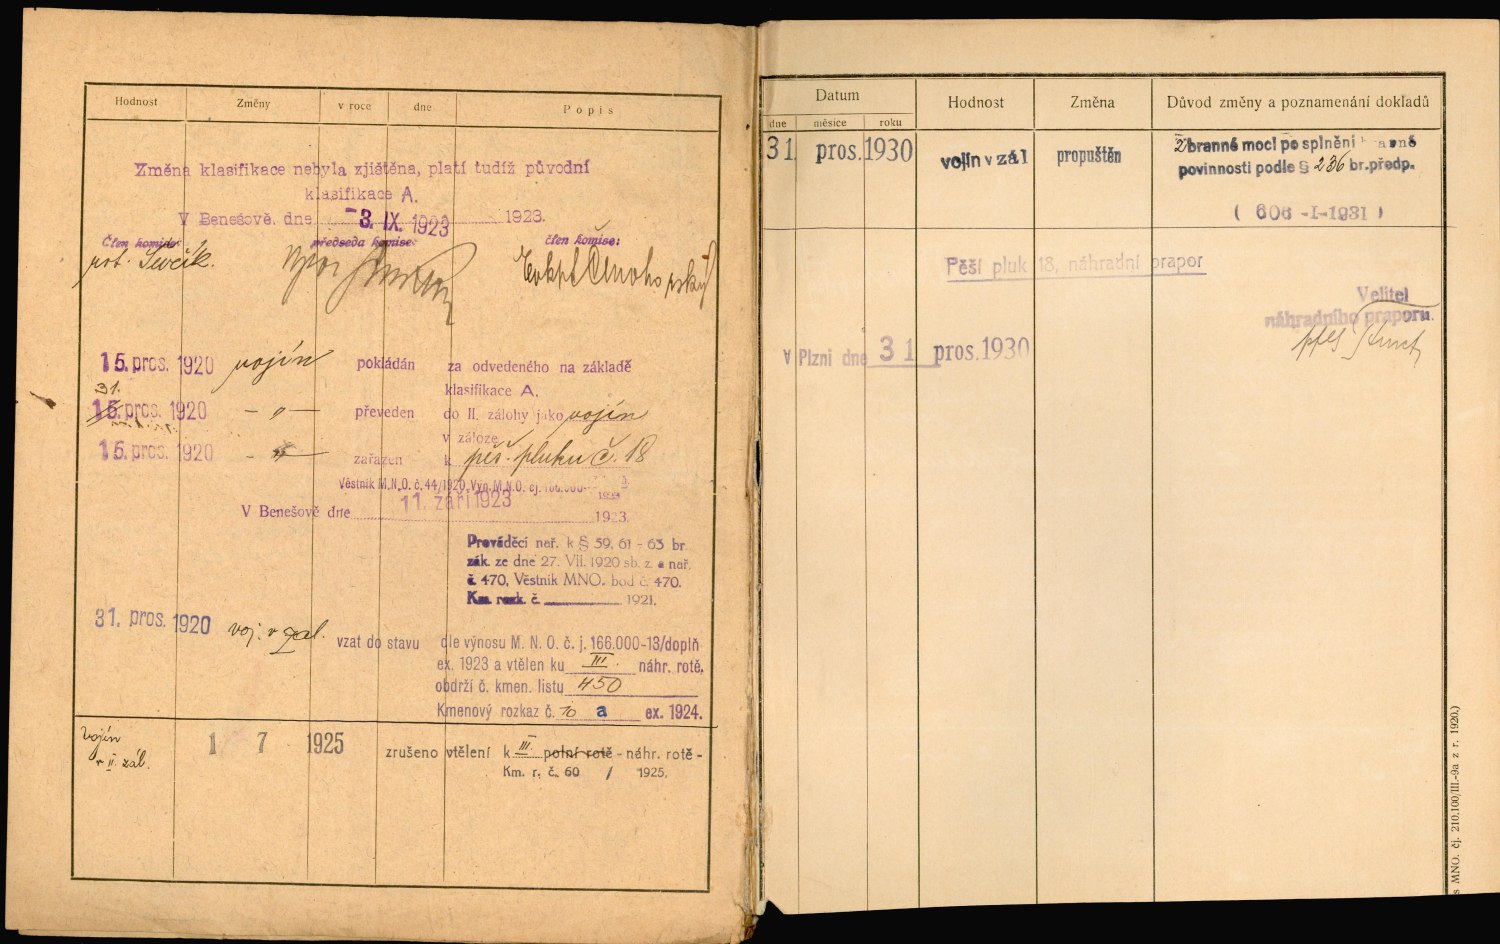 Hodnost Změny v roce dne Popis
Změna klasifikace nebyla zjištěna, platí tudíž původní
klasifikace A.
V Benešově, dne -3. IX. 1923 1923.
Člen komise: předseda komise: člen komise:
15. pros. 1920 vojín pokládán za odvedeného na základě
klasifikace A.
31.
15. pros. 1920 – „ – převeden do II. zálohy jako vojín
v záloze
15. pros. 1920 – „ – zařazen k pěš. pluku č. 18
Věstník M.N.O. č. 44/1920. Vyn. M.N.O. čj. 166.000-
11. září 1923
V Benešově dne 1923.
Prováděcí nař. k § 59, 61 - 63 br.
zák. ze dne 27. VII. 1920 sb. z. a nař.
č. 470, Věstník MNO. bod č. 470.
Km. rozk. č. 1921.
31. pros. 1920 voj. v zál. vzat do stavu dle výnosu M. N. O. č. j. 166.000-13/doplň
ex. 1923 a vtělen ku III. náhr. rotě,
obdrží č. kmen. listu 450
Kmenový rozkaz č. 10 a ex. 1924.
vojín
v II. zál. 1 7 1925 zrušeno vtělení k III. polní rotě - náhr. rotě -
Km. r. č. 60 / 1925.
Datum Hodnost Změna Důvod změny a poznamenání dokladů
dne měsíce roku
31. pros. 1930 vojín v zál propuštěn z branné moci po splnění
povinnosti podle § 236 br. předp.
( 606 -I-1931 )
Pěší pluk 18, náhradní prapor
Velitel
náhradního praporu.
V Plzni dne 31 pros. 1930
MNO. čj. 210.100/III.-9a z r. 1920.)